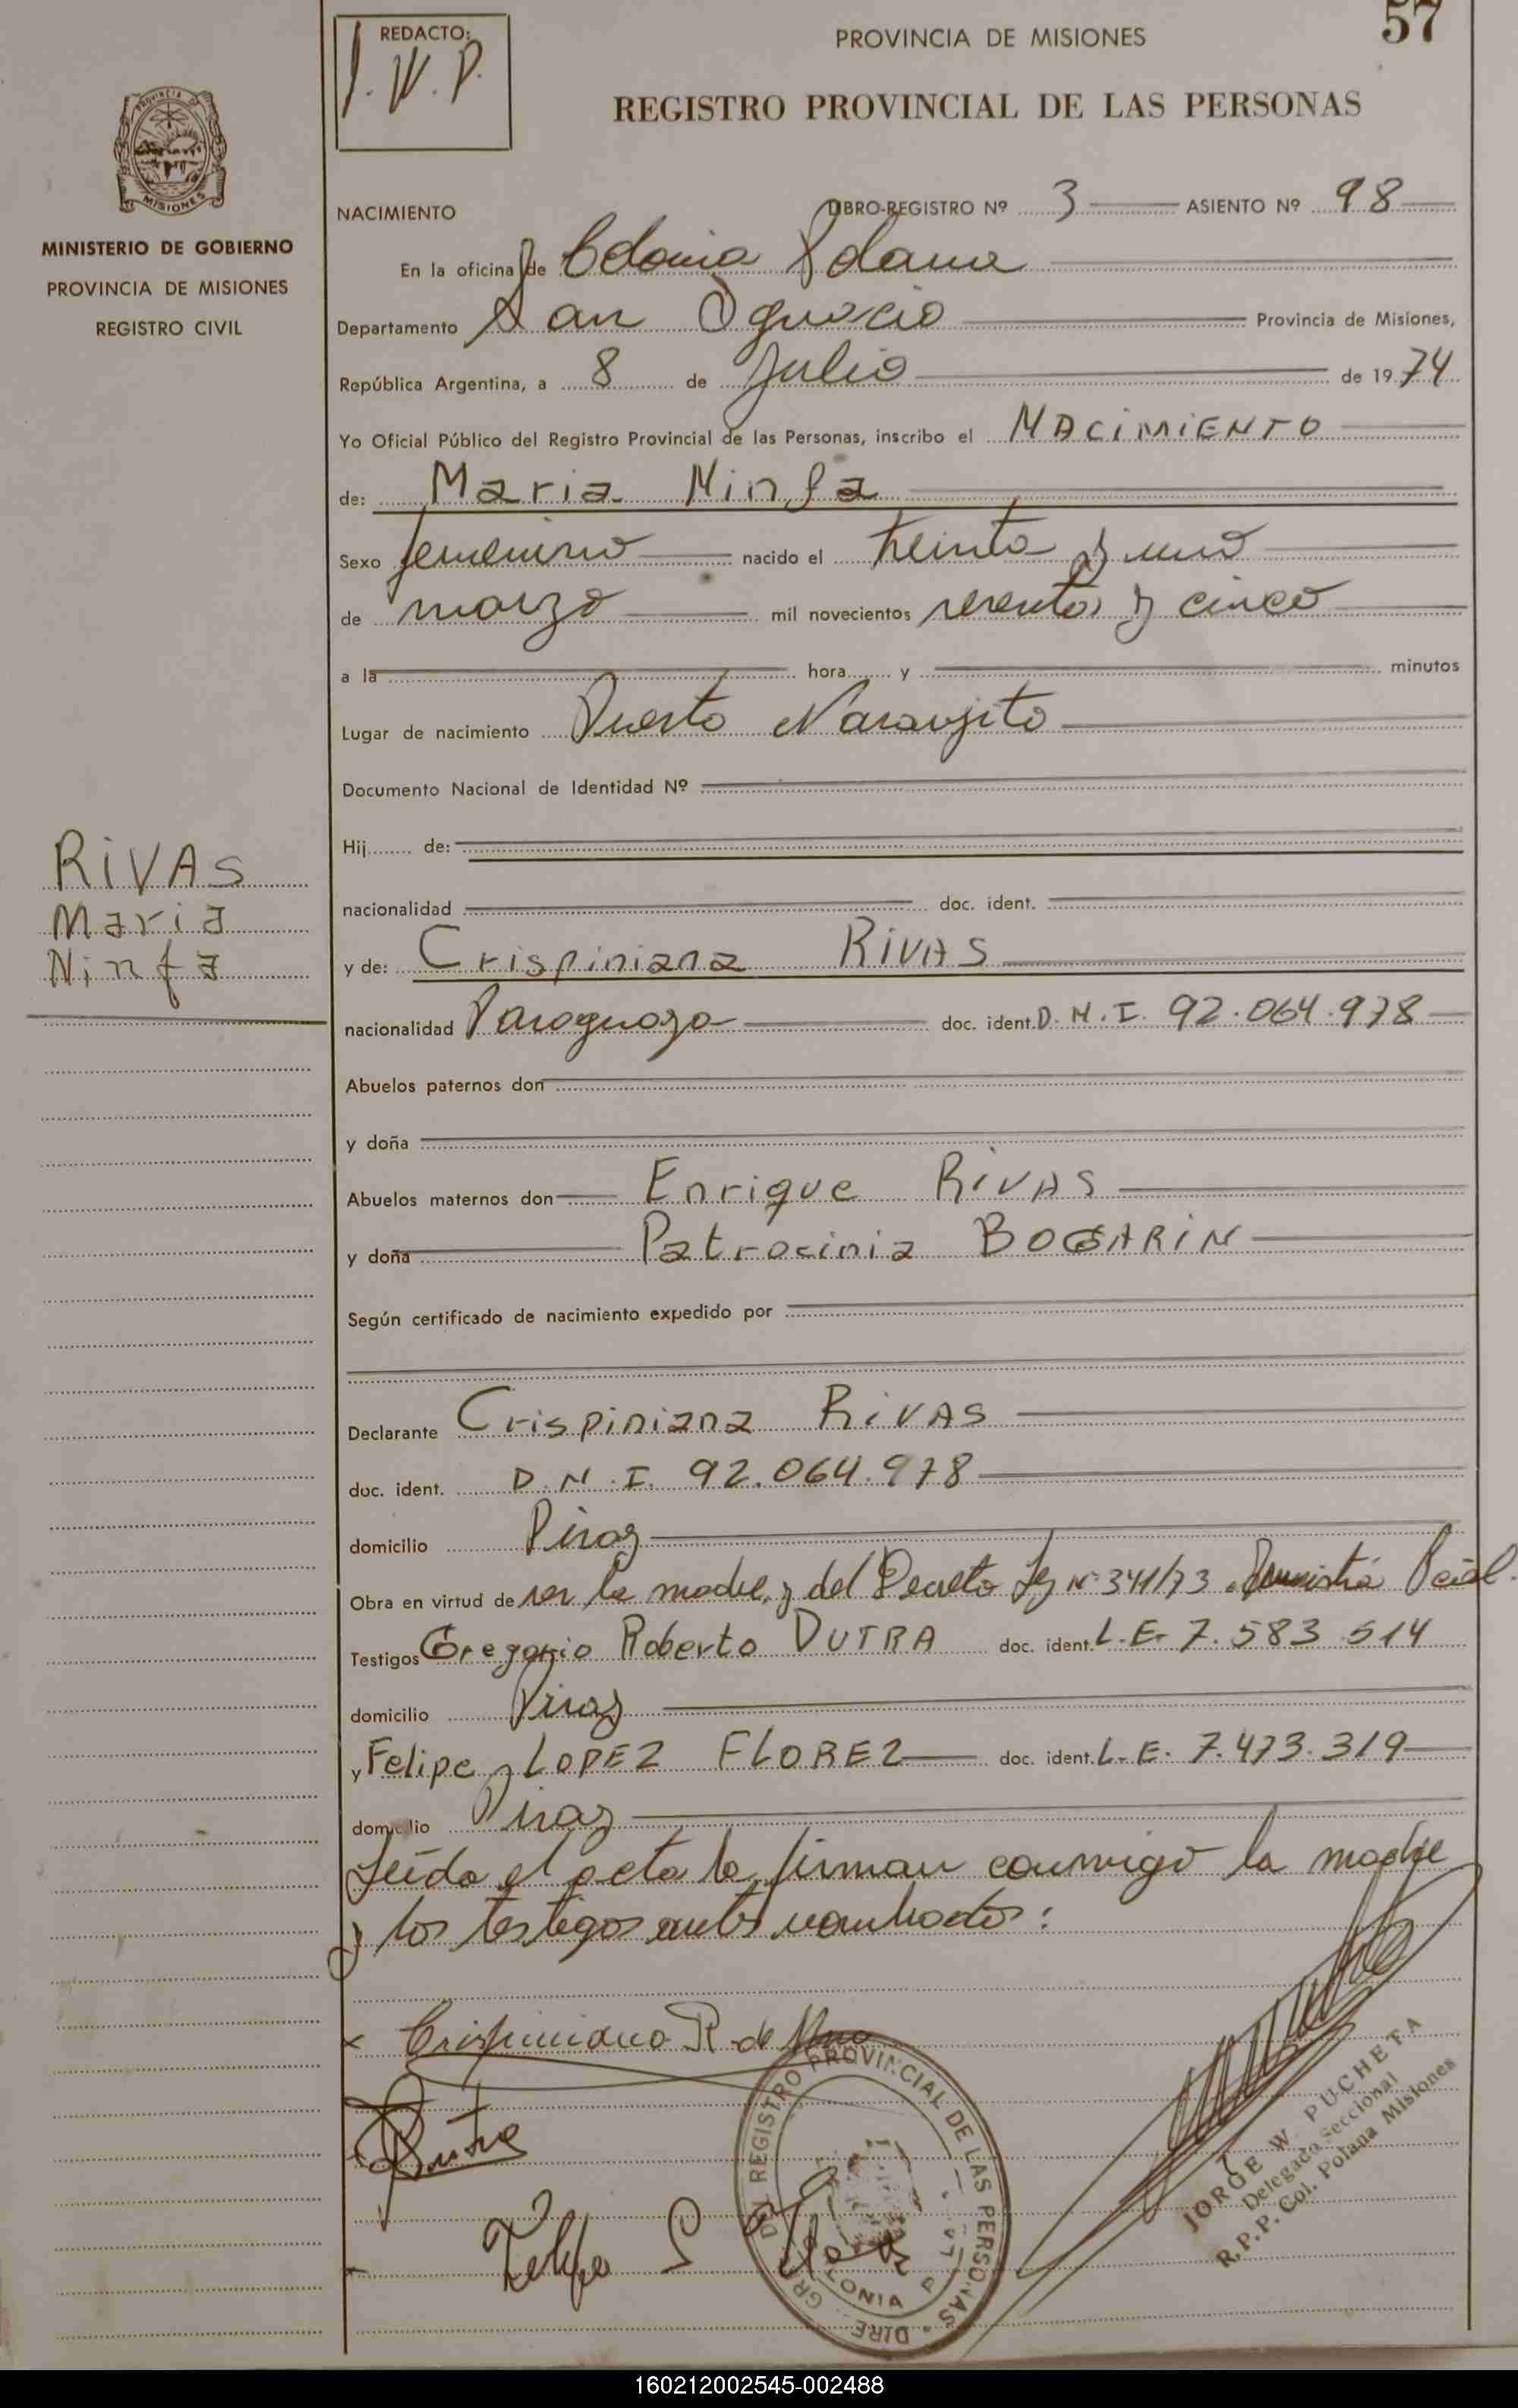 57
REDACTO:
J. W. P.
PROVINCIA DE MISIONES
REGISTRO PROVINCIAL DE LAS PERSONAS
MISIONES
MINISTERIO DE GOBIERNO
PROVINCIA DE MISIONES
REGISTRO CIVIL
NACIMIENTO LIBRO-REGISTRO Nº 3 ASIENTO Nº 98
En la oficina de Colonia Polana
Departamento San Ignacio Provincia de Misiones,
República Argentina, a 8 de Julio de 1974
Yo Oficial Público del Registro Provincial de las Personas, inscribo el NACIMIENTO
de: Maria Ninfa
Sexo femenino nacido el treinta y uno
de marzo mil novecientos sesenta y cinco
a la hora y minutos
Lugar de nacimiento Puerto Naranjito
Documento Nacional de Identidad Nº
Hij de:
nacionalidad doc. ident.
RIVAS
Maria
Ninfa
y de: Crispiniana RIVAS
nacionalidad Paraguaya doc. ident. D.N.I. 92.064.978
Abuelos paternos don
y doña
Abuelos maternos don Enrique RIVAS
y doña Patrocinia BOGARIN
Según certificado de nacimiento expedido por
Declarante Crispiniana RIVAS
doc. ident. D.N.I. 92.064.978
domicilio Piray
Obra en virtud de ser la madre, y del Decreto Ley Nº 341/73
Testigos Gregorio Roberto DUTRA doc. ident. L.E. 7.583.514
domicilio Piray
y Felipe LOPEZ FLOREZ doc. ident. L.E. 7.473.319
domicilio Piray
Leida el acta la firman conmigo la madre
y los testigos antes nombrados:
Crispiniana R de
Dutra
Felipe L
REGISTRO PROVINCIAL DE LAS PERSONAS
COLONIA
JORGE W PUCHETA
Delegado Seccional
R.P.P. Col. Polana Misiones
160212002545-002488